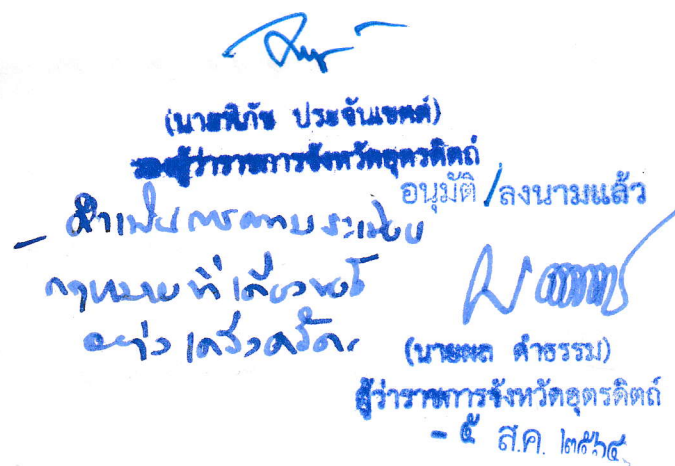 (นายพิภัช ประจันเขตต์)
รองผู้ว่าราชการจังหวัดอุตรดิตถ์
อนุมัติ / ลงนามแล้ว
- ดำเนินการตามระเบียบ
กฎหมายที่เกี่ยวข้อง
อย่างเคร่งครัด
(นายผล ดำธรรม)
ผู้ว่าราชการจังหวัดอุตรดิตถ์
- ๕ ส.ค. ๒๕๖๔